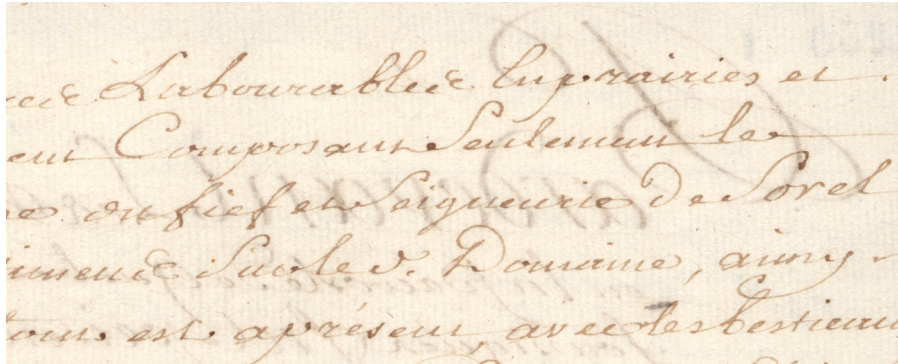 Labourablee Enprairies et
ent Composant Seulement le
du fief et Seigneurie De Sorel
Surled. Domaine, ainsy
tout est apresent, avec les bestiaux